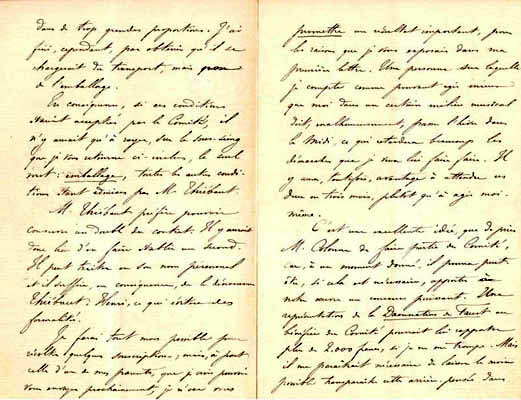 dans de trop grandes proportions. J'ai
fini, cependant, par obtenir qu'il se
chargerait du transport, mais
de l'emballage.
En conséquence, si ces conditions
étaient acceptées par le Comité, il
n'y aurait qu'à rayer, sur le sous-seing
que je vous retourne ci-inclus, le seul
mot : emballage, toutes les autres condi-
tions étant admises par M. Thiébaut.
M. Thiébaut préfère pouvoir
conserver un double du contrat. Il y aurait
donc lieu d'en faire établir un second.
Il peut traiter en son nom personnel
et il suffira, en conséquence, de la dénomination
Thiébaut : Henri, ce qui évitera des
formalités.
Je ferai tout mon possible pour
récolter quelques souscriptions ; mais, à part
celle d'un de mes parents, que je vais pouvoir
vous envoyer prochainement, je n'ose vous
promettre un résultat important, pour
la raison que je vous exposais dans ma
première lettre. Une personne sur laquelle
je comptais comme pouvant agir mieux
que moi dans un certain milieu musical
doit, malheureusement, passer l'hiver dans
le Midi, ce qui retardera beaucoup les
démarches que je veux lui faire faire. Il
y aura, toutefois, avantage à attendre un
deux ou trois mois, plutôt qu'à agir moi-
même.
C'est une excellente idée, que de prier
M. Colonne de faire partie du Comité,
car, à un moment donné, il pourra peut
être, si cela est nécessaire, apporter
notre œuvre un concours puissant. Une
représentation de la Damnation de Faust au
bénéfice du Comité pourrait lui rapporter
plus de 2.000 francs, si je ne me trompe. Mais
il me paraîtrait nécessaire de laisser le moins
possible transparaître cette arrière-pensée dans